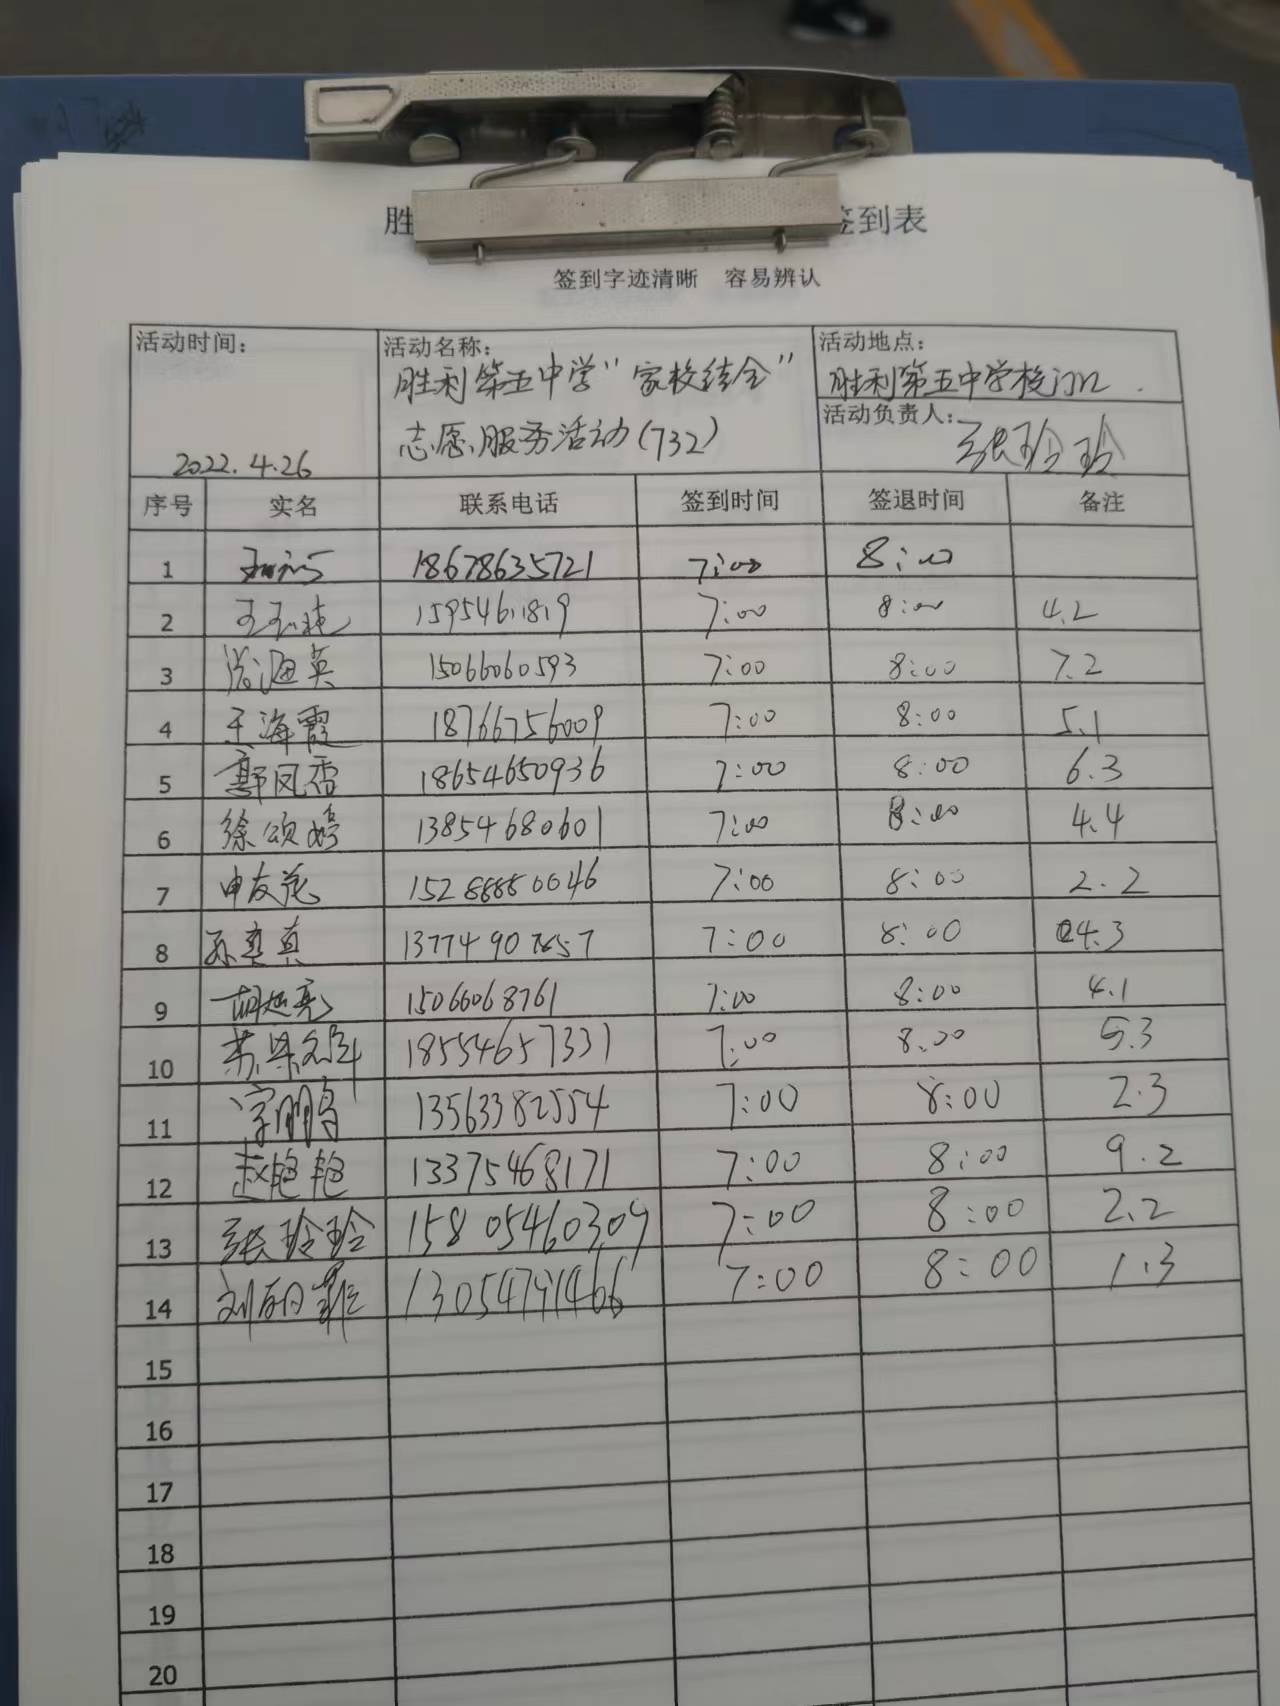 胜 签到表
签到字迹清晰 容易辨认
活动时间: 活动名称: 活动地点:
胜利第五中学"家校结合" 胜利第五中学校门口.
活动负责人:
志愿服务活动(732) 张玲玲
2022.4.26
序号 实名 联系电话 签到时间 签退时间 备注
1 18678635721 7:00 8:00
2 15954611819 7:00 8:00 4.2
3 海英 15066060593 7:00 8:00 7.2
4 王海霞 18766756009 7:00 8:00 5.1
5 鄭凤雪 18654650936 7:00 8:00 6.3
6 徐颂婷 13854680601 7:00 8:00 4.4
7 申友花 15288880046 7:00 8:00 2.2
8 孙奕真 7:00 8:00 4.3
9 胡延亮 15066068761 7:00 8:00 4.1
10 18554657331 7:00 8:00 5.3
11 13563382554 7:00 8:00 2.3
12 赵艳艳 13375468171 7:00 8:00 9.2
13 张玲玲 15805460309 7:00 8:00 2.2
14 7:00 8:00 1.3
15
16
17
18
19
20